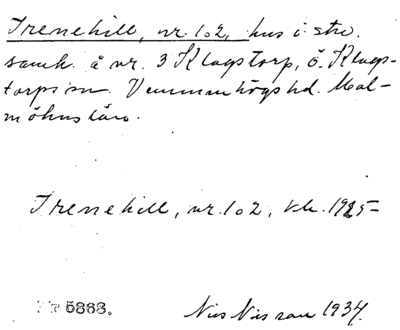 Irenehill, nr. 1o2, hus i stre.
samh. å nr. 3 Klagstorp, ö. Klags-
torps sn. Vemmenhögs hd. Mal-
möhus län.
Irenehill, nr. 1o2, kh. 1925-
5868. Nils Nilsson 1934.